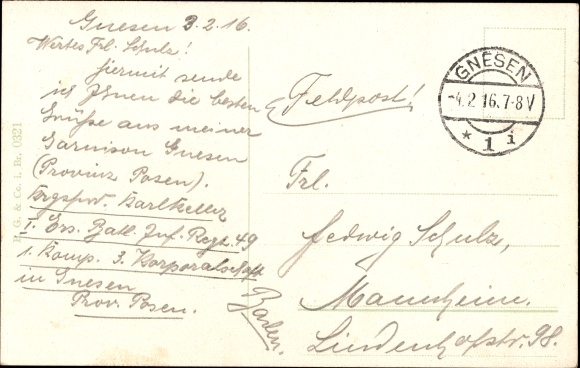 Gnesen 3.2.16.
Wertes Frl. Schulz!
hiermit sende
ich Ihnen die besten
Grüße aus meiner
Garnison Gnesen
(Provinz Posen).
Karlkeller
1. Ers. Batl. Inf. Regt. 49
1. Komp. 3. Korporalschaft
in Gnesen
Prov. Posen.
Feldpost!
GNESEN
-4.2.16.7-8V
* 1 i
Frl.
Hedwig Schulz,
Mannheim.
Lindenhofstr. 98.
Baden.
G. & Co. l. Br. 0321